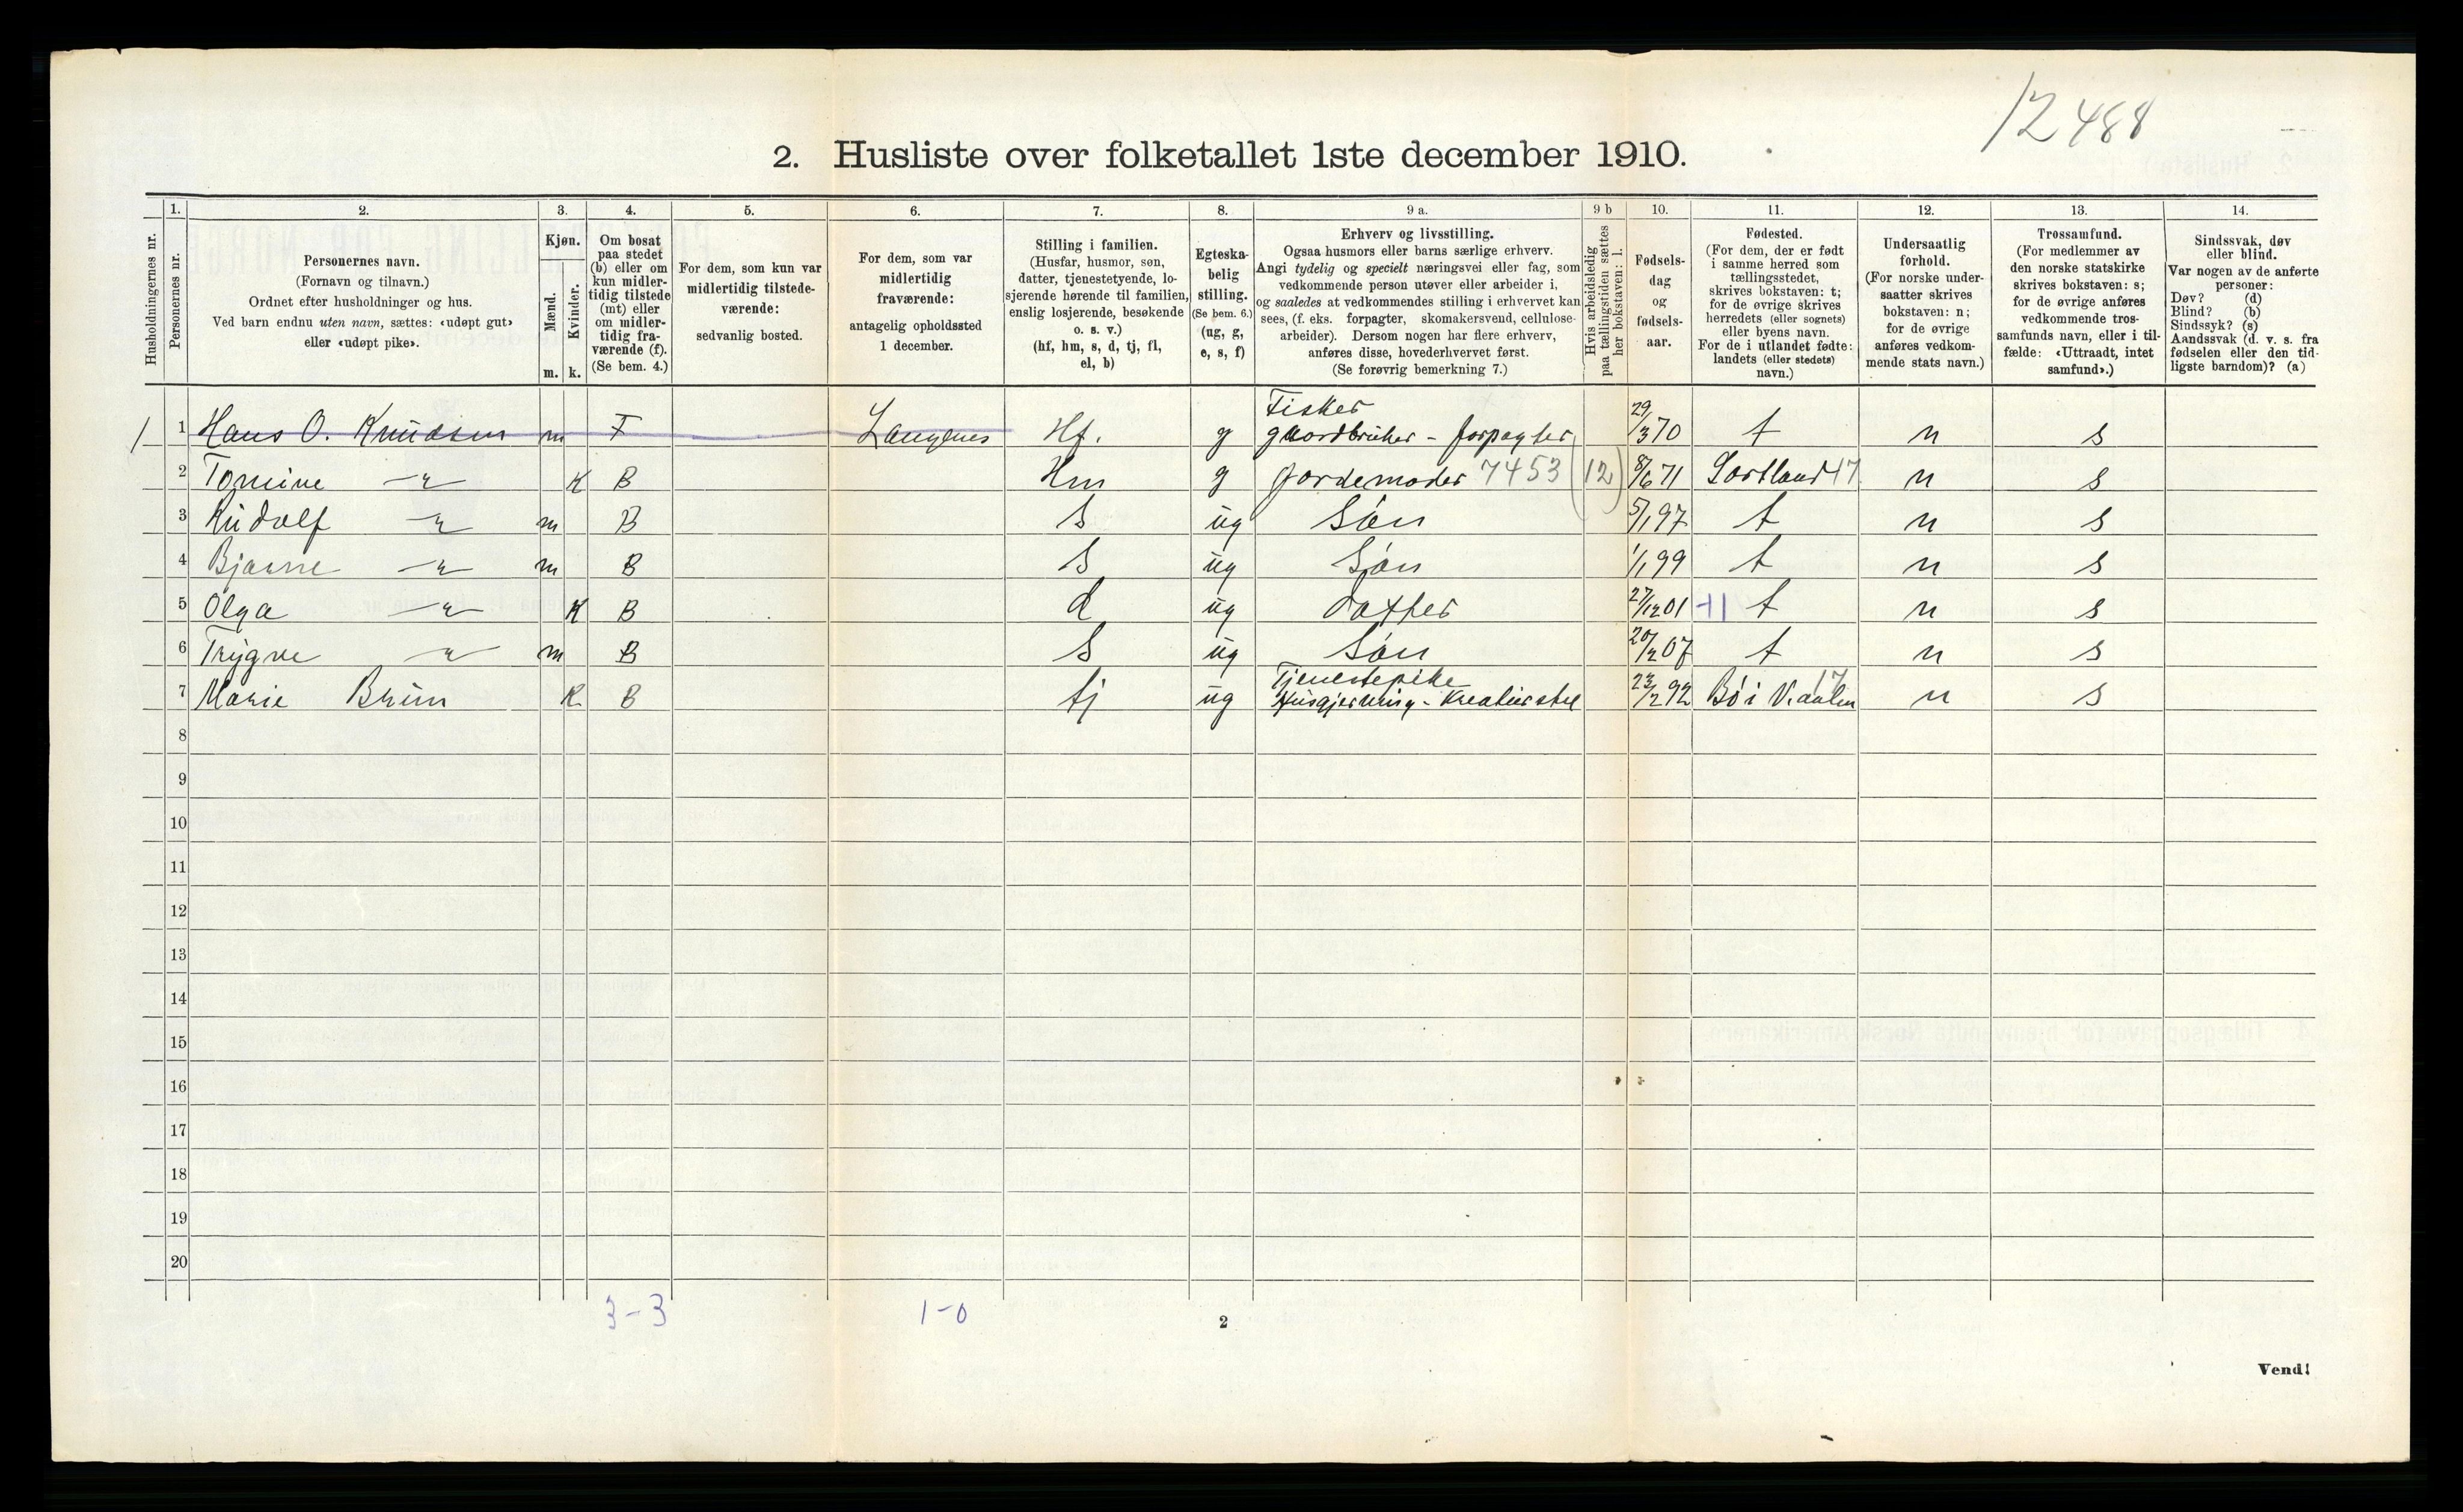 12488
2. Husliste over folketallet 1ste december 1910.
Husholdningernes nr.
1.
Personernes nr.
2.
Personernes navn.
(Fornavn og tilnavn.)
Ordnet efter husholdninger og hus.
Ved barn endnu uten navn, sættes: «udøpt gut»
eller «udøpt pike».
3.
Kjøn.
Mænd.
Kvinder.
m. k.
4.
Om bosat
paa stedet
(b) eller om
kun midler-
tidig tilstede
(mt) eller
om midler-
tidig fra-
værende (f).
(Se bem. 4.)
5.
For dem, som kun var
midlertidig tilstede-
værende:
sedvanlig bosted.
6.
For dem, som var
midlertidig
fraværende:
antagelig opholdssted
1 december.
7.
Stilling i familien.
(Husfar, husmor, søn,
datter, tjenestetyende, lo-
sjerende hørende til familien,
enslig losjerende, besøkende
o. s. v.)
(hf, hm, s, d, tj, fl,
el, b)
8.
Egteska-
belig
stilling.
(Se bem. 6.)
(ug, g,
e, s, f)
9 a.
Erhverv og livsstilling.
Ogsaa husmors eller barns særlige erhverv.
Angi tydelig og specielt næringsvei eller fag, som
vedkommende person utøver eller arbeider i,
og saaledes at vedkommendes stilling i erhvervet kan
sees, (f. eks. forpagter, skomakersvend, cellulose-
arbeider). Dersom nogen har flere erhverv,
anføres disse, hovederhvervet først.
(Se forøvrig bemerkning 7.)
9 b
Hvis arbeidsledig
paa tællingstiden sættes
her bokstaven: l.
10.
Fødsels-
dag
og
fødsels-
aar.
11.
Fødested.
(For dem, der er født
i samme herred som
tællingsstedet,
skrives bokstaven: t;
for de øvrige skrives
herredets (eller sognets)
eller byens navn.
For de i utlandet fødte:
landets (eller stedets)
navn.)
12.
Undersaatlig
forhold.
(For norske under-
saatter skrives
bokstaven: n;
for de øvrige
anføres vedkom-
mende stats navn.)
13.
Trossamfund.
(For medlemmer av
den norske statskirke
skrives bokstaven: s;
for de øvrige anføres
vedkommende tros-
samfunds navn, eller i til-
fælde: «Uttraadt, intet
samfund».)
14.
Sindssvak, døv
eller blind.
Var nogen av de anførte
personer:
Døv? (d)
Blind? (b)
Sindssyk? (s)
Aandssvak (d. v. s. fra
fødselen eller den tid-
ligste barndom)? (a)
Fisker
1 1 Hans O. Knudsen m F Langenes Hf. g gaardbruker - forpagter 29/3 70 t n s
2 Tomine -"- K B Hm g Jordemoder 7453 (12) 8/6 71 Sortland 17 n s
3 Rudolf -"- m B S ug Søn 5/1 97 t n s
4 Bjarne -"- m B S ug Søn 1/1 99 t n s
5 Olga -"- K B d ug datter 27/12 01 t n s
6 Trygve -"- m B S ug Søn 20/2 07 t n s
Tjenestepike
7 Marie Bruun K B tj ug Husgjerning - Kreaturstel 23/2 92 Bø i V.aalen 17 n s
8
9
10
11
12
13
14
15
16
17
18
19
20
3-3 1-0
2
Vend!